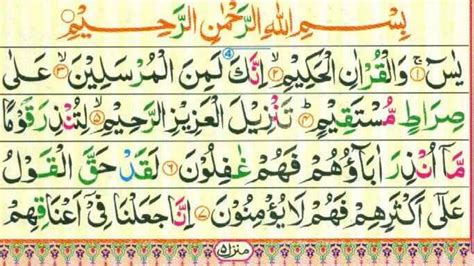 بِسْمِ اللهِ الرَّحْمٰنِ الرَّحِيْمِ
يٰسٓ ۚ﴿۱﴾ وَالْقُرْاٰنِ الْحَكِيْمِ ۙ﴿۲﴾ اِنَّكَ لَمِنَ الْمُرْسَلِيْنَ ۙ﴿۳﴾ عَلٰى
صِرَاطٍ مُّسْتَقِيْمٍ ؕ﴿۴﴾ تَنْزِيْلَ الْعَزِيْزِ الرَّحِيْمِ ۙ﴿۵﴾ لِتُنْذِرَ قَوْمًا
مَّاۤ اُنْذِرَ اٰبَآؤُهُمْ فَهُمْ غٰفِلُوْنَ ﴿۶﴾ لَقَدْ حَقَّ الْقَوْلُ
عَلٰۤى اَكْثَرِهِمْ فَهُمْ لَا يُؤْمِنُوْنَ ﴿۷﴾ اِنَّا جَعَلْنَا فِيْۤ اَعْنَاقِهِمْ
منزل ۵